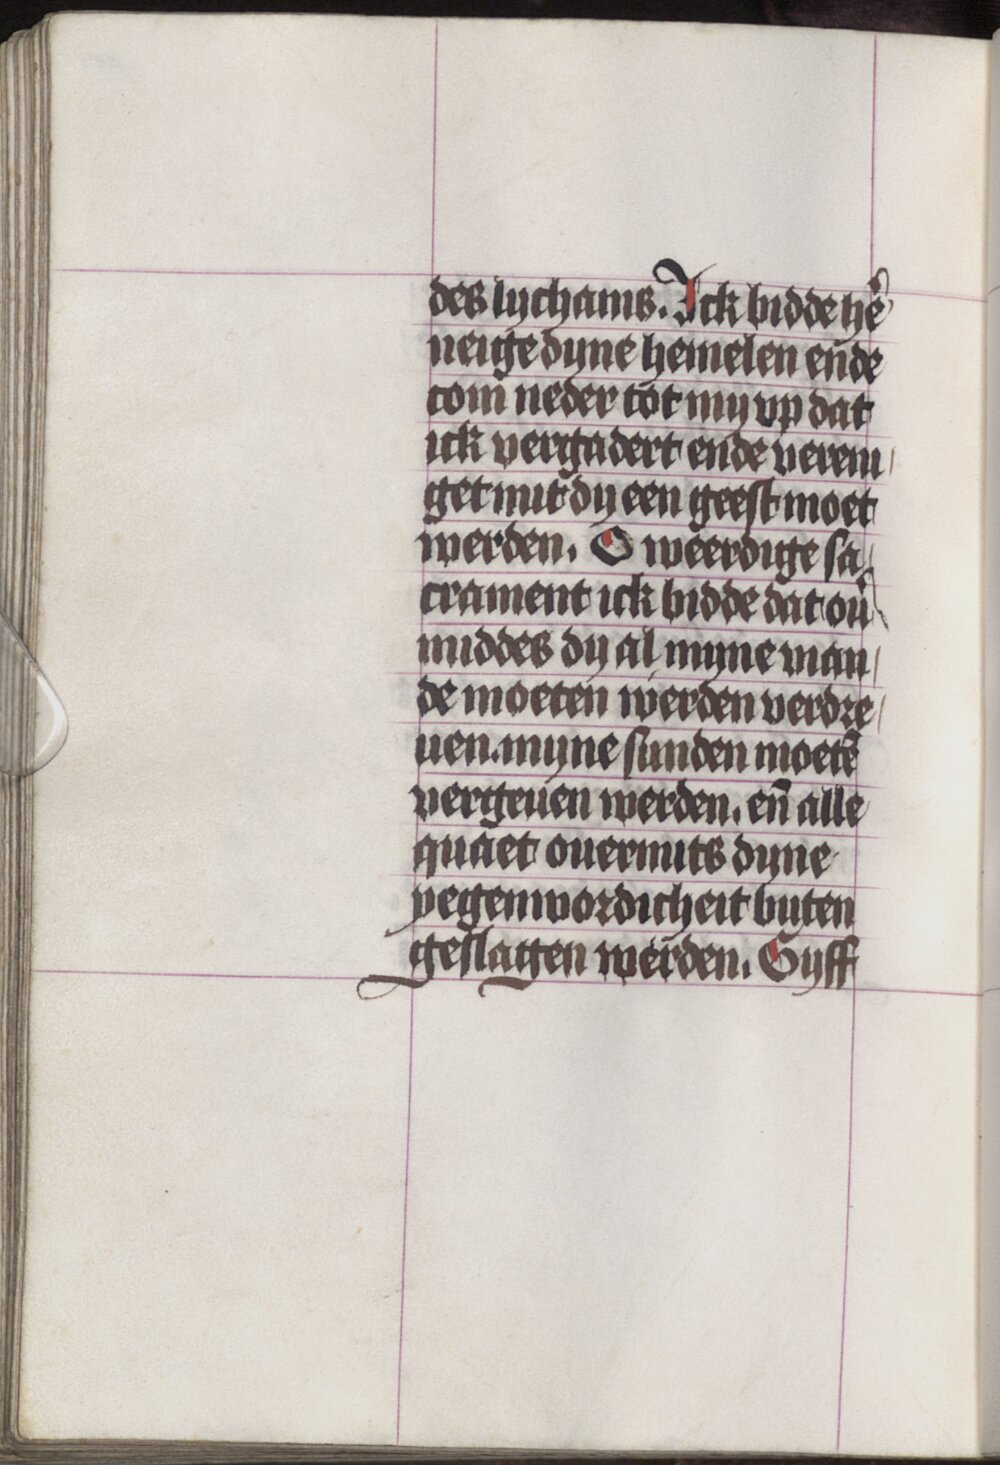 des lychams. Ick bidde hē
neige dyne hemelen ende
com neder tot my vp dat
ick vergadert ende verein/
get mit dy een geest moet
werden. O weerdige sa/
crament ick bidde dat ou̇
middes dy al myne vian/
de moeten werden verdre/
uen. myne sunden moetē
vergeuen werden. en̄ alle
quaet ouermits dyne
yegenwordicheit buten
geslagen werden. Gyff